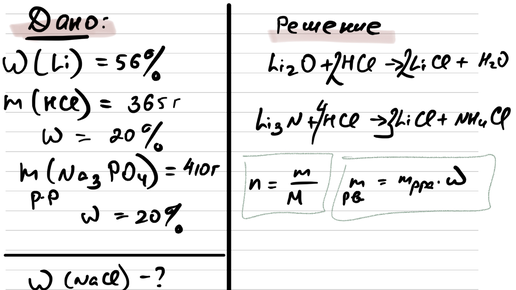 Дано:
ω(Li) = 56%
m(HCl) = 365г
ω = 20%
m(Na₃PO₄) = 410г
р-р
ω = 20%
ω(NaCl) - ?
Решение
Li₂O + 2HCl → 2LiCl + H₂O
Li₃N + 4HCl → 3LiCl + NH₄Cl
n = m/M
m рв = m рра · ω